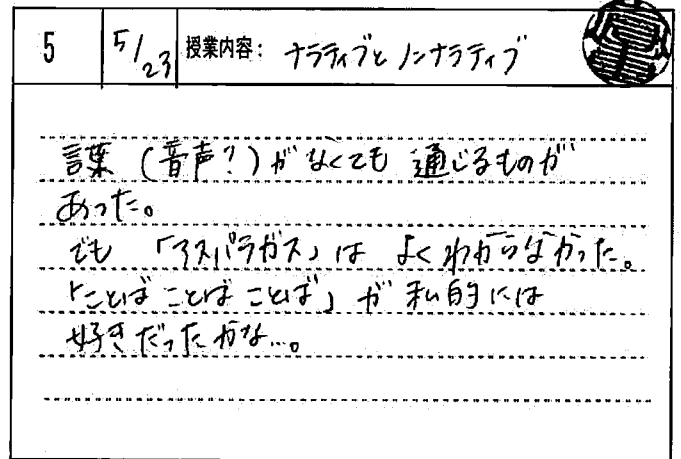 5 5/23 授業内容: ナラティブとノンナラティブ
言葉(音声?)がなくても 通じるものが
あった。
でも 「アスパラガス」は よくわからなかった。
「ことば ことば ことば」が 私的には
好きだったかな…。